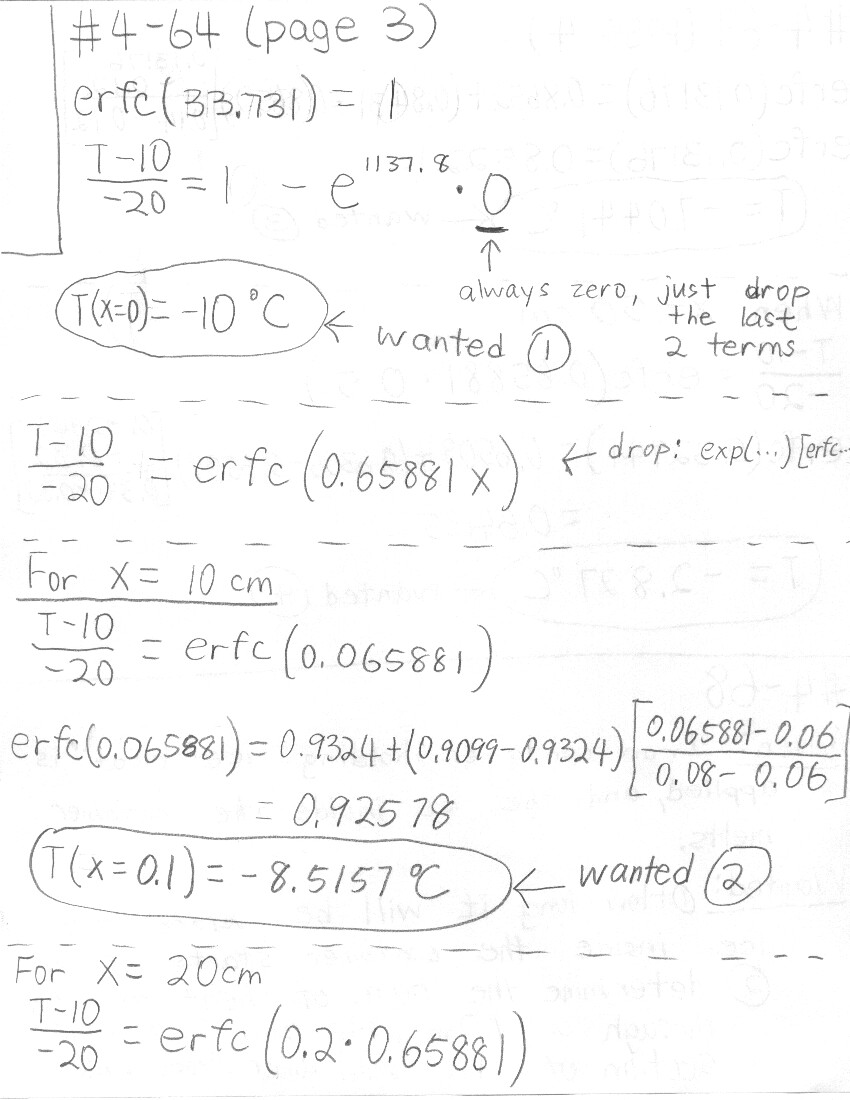 #4-64 (page 3)
erfc(33.731) = 1
T-10/-20 = 1 - e^1137.8 · 0
always zero, just drop the last 2 terms
T(x=0) = -10 °C ← wanted ①
T-10/-20 = erfc(0.65881 x) ← drop: exp(...)[erfc..
For x = 10 cm
T-10/-20 = erfc(0.065881)
erfc(0.065881) = 0.9324+(0.9099-0.9324)[0.065881-0.06/0.08-0.06]
= 0.92578
T(x=0.1) = -8.5157 °C ← wanted ②
For x = 20cm
T-10/-20 = erfc(0.2·0.65881)